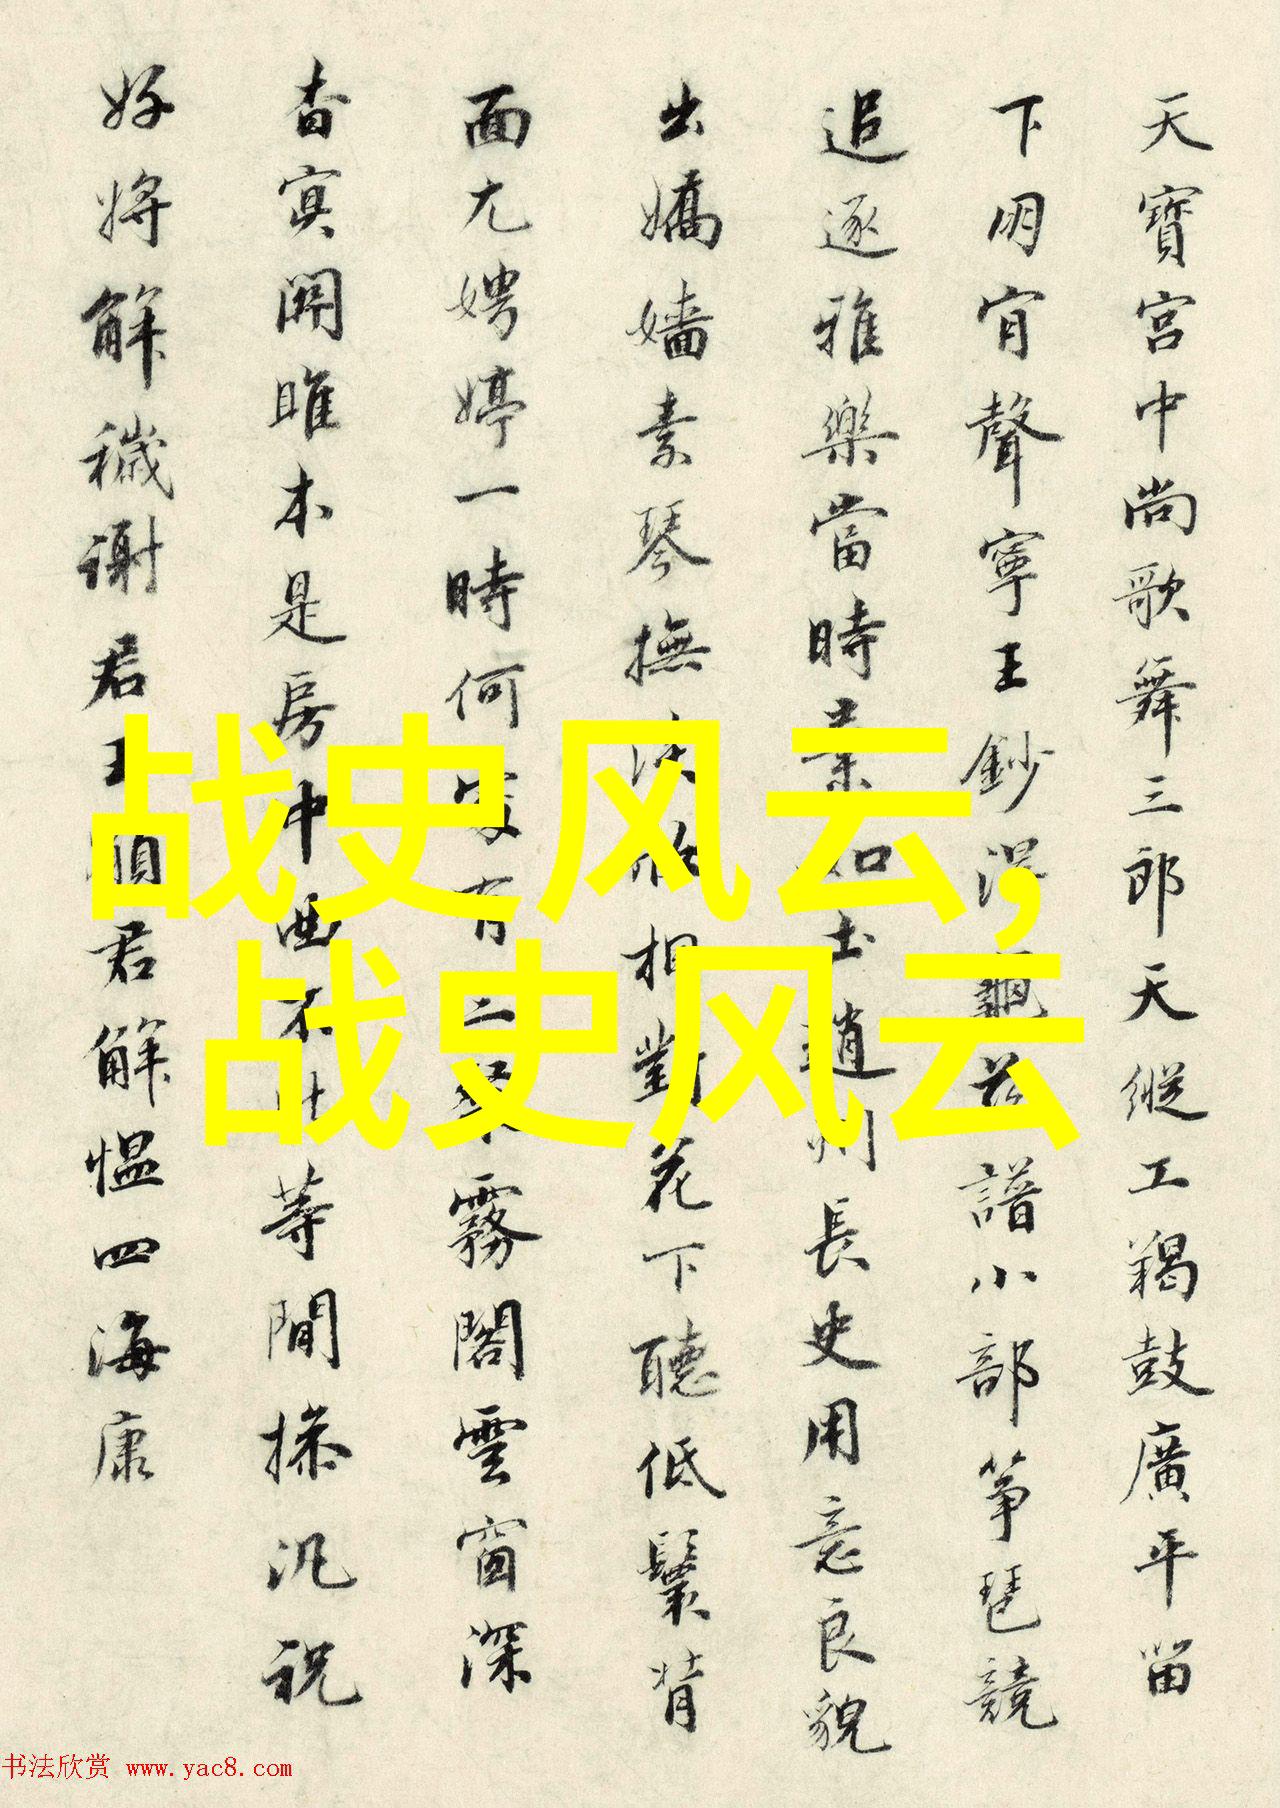 天寶宮中尚歌舞三郎天縱工羯鼓廣平畱
下明聲寧王鈔龜茲譜小部箏琵競
追逐雅樂當時棄如土趙州長史用意良貌
出嬌嬙素琴撫相對花下聽低鬟背
面尤娉婷一時何處有霧閣雲窗深
杳冥關雎本是房中曲不比等閒操汎祝
好將解穢謝君王願君解慍四海康
战史风云,
战史风云
书法欣赏 www.yac8.com